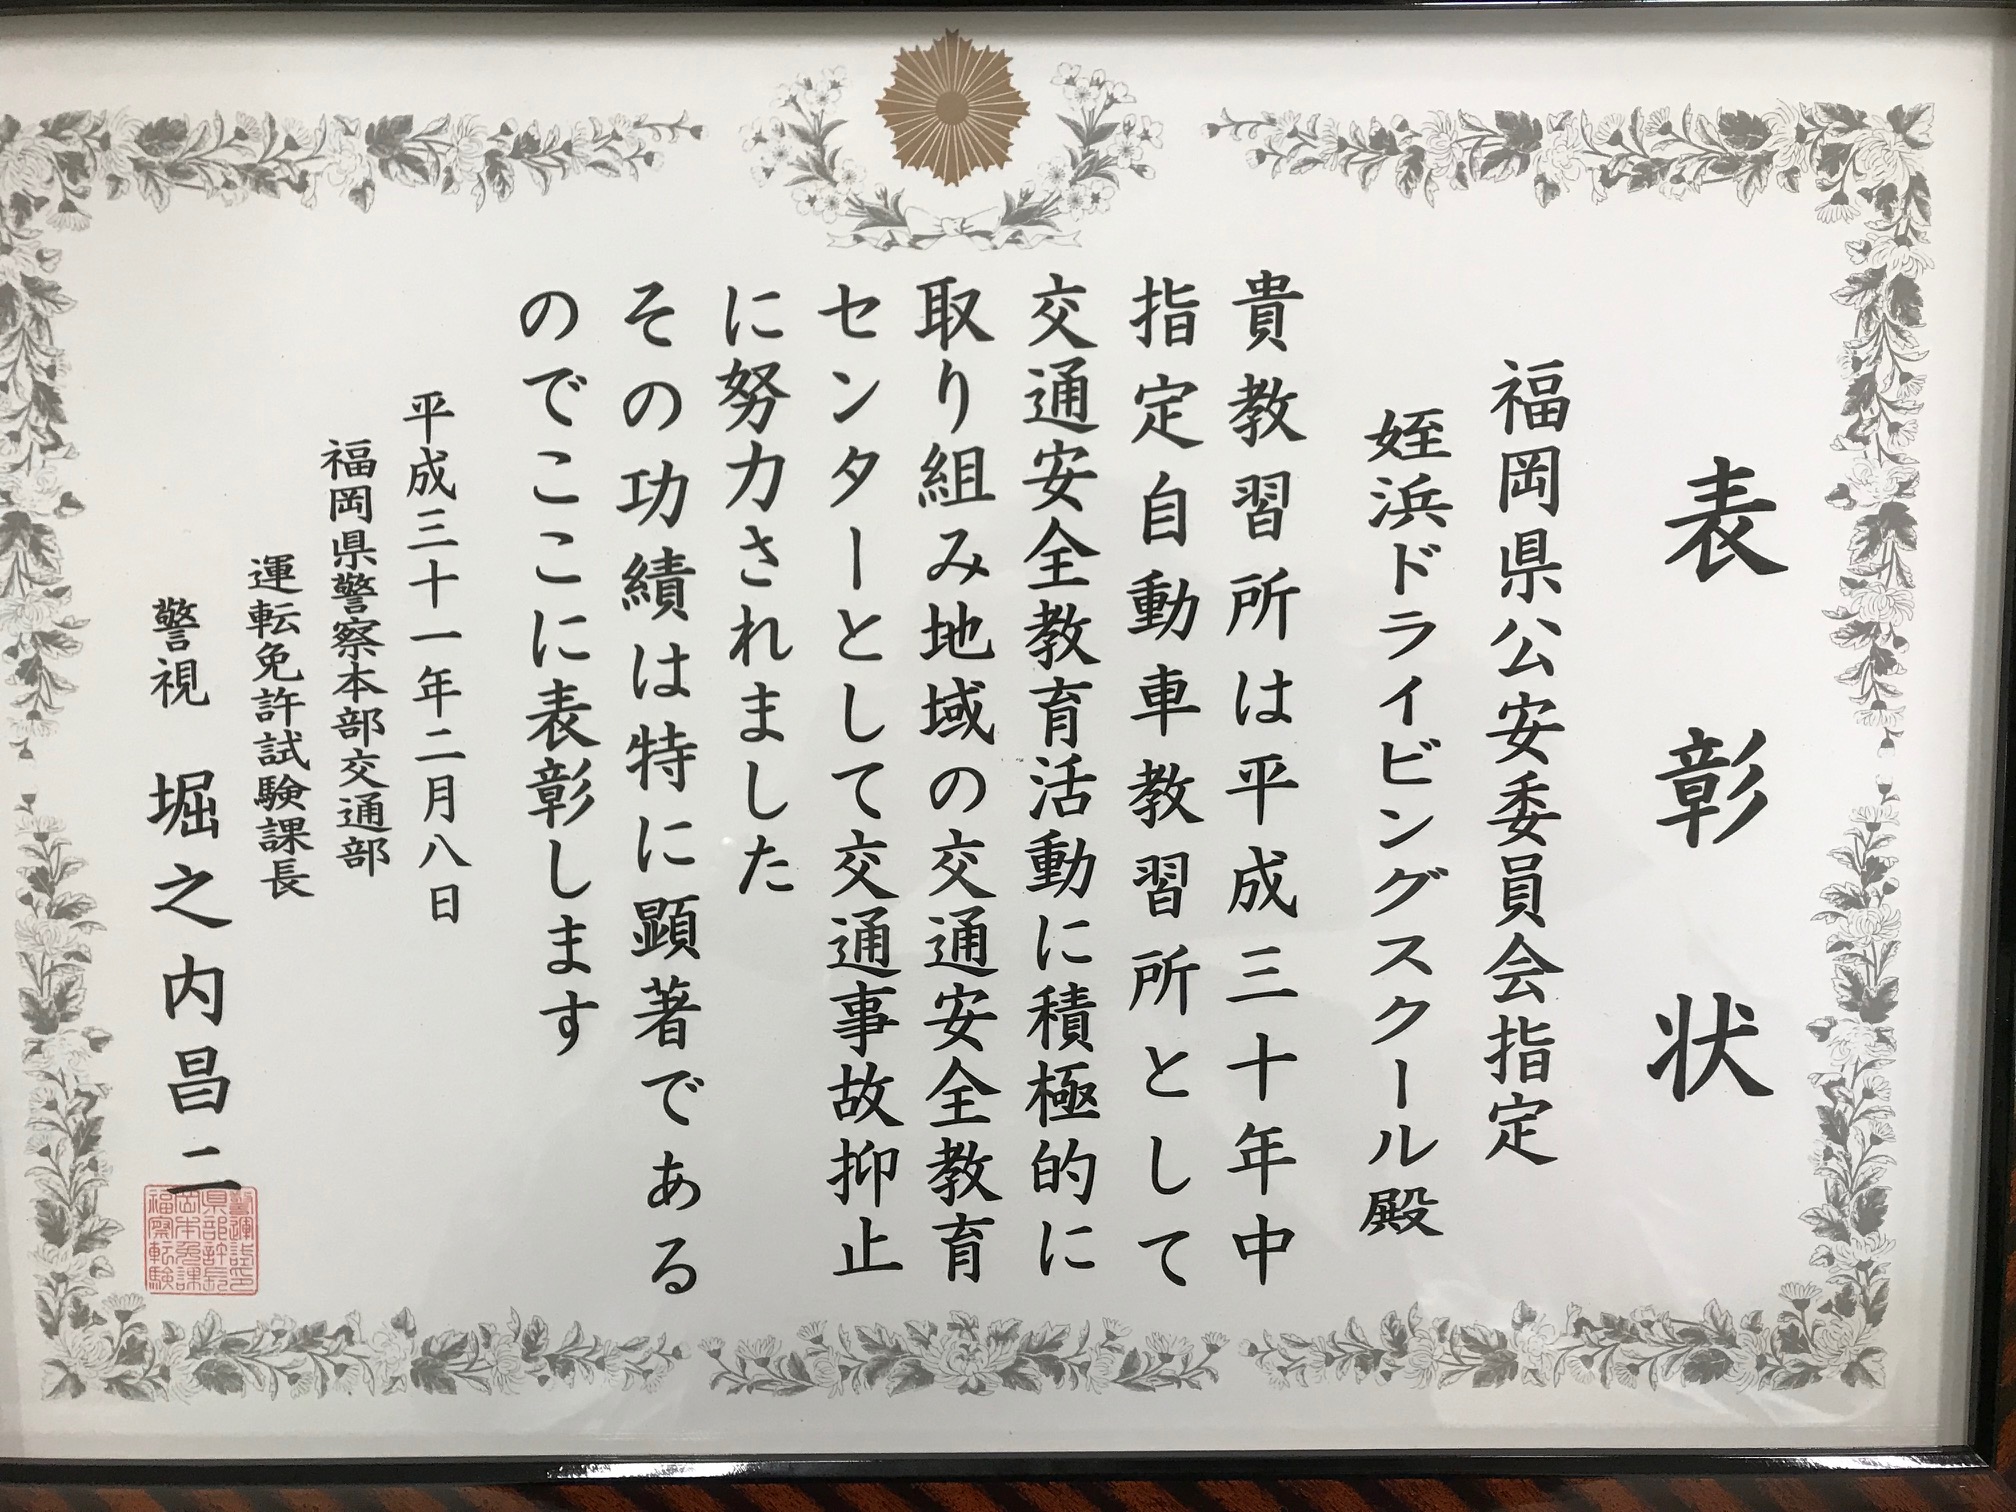 表彰状
福岡県公安委員会指定
姪浜ドライビングスクール殿
貴教習所は平成三十年中
指定自動車教習所として
交通安全教育活動に積極的に
取り組み地域の交通安全教育
センターとして交通事故抑止
に努力されました
その功績は特に顕著である
のでここに表彰します
平成三十一年二月八日
福岡県警察本部交通部
運転免許試験課長
警視 堀之内昌二